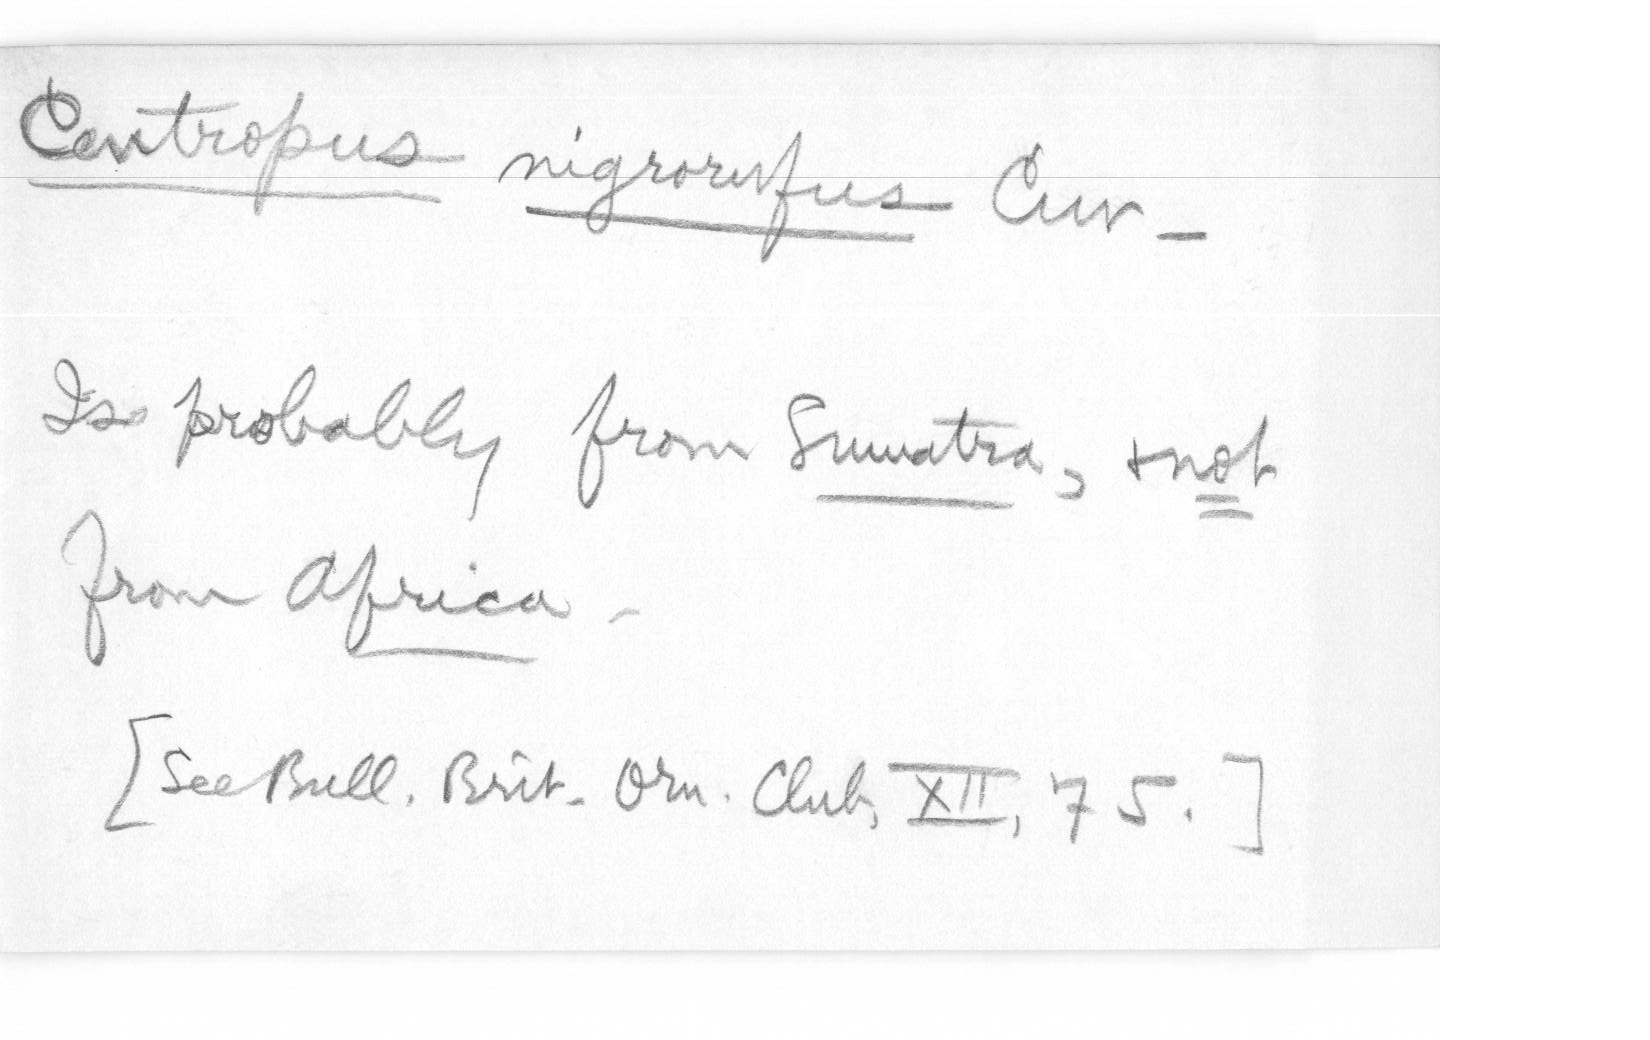 Centropus nigrorufus Cuv -
Is probably from Sumatra, + not
from Africa -
[See Bull. Brit. Orn. Club, XII, 75.]